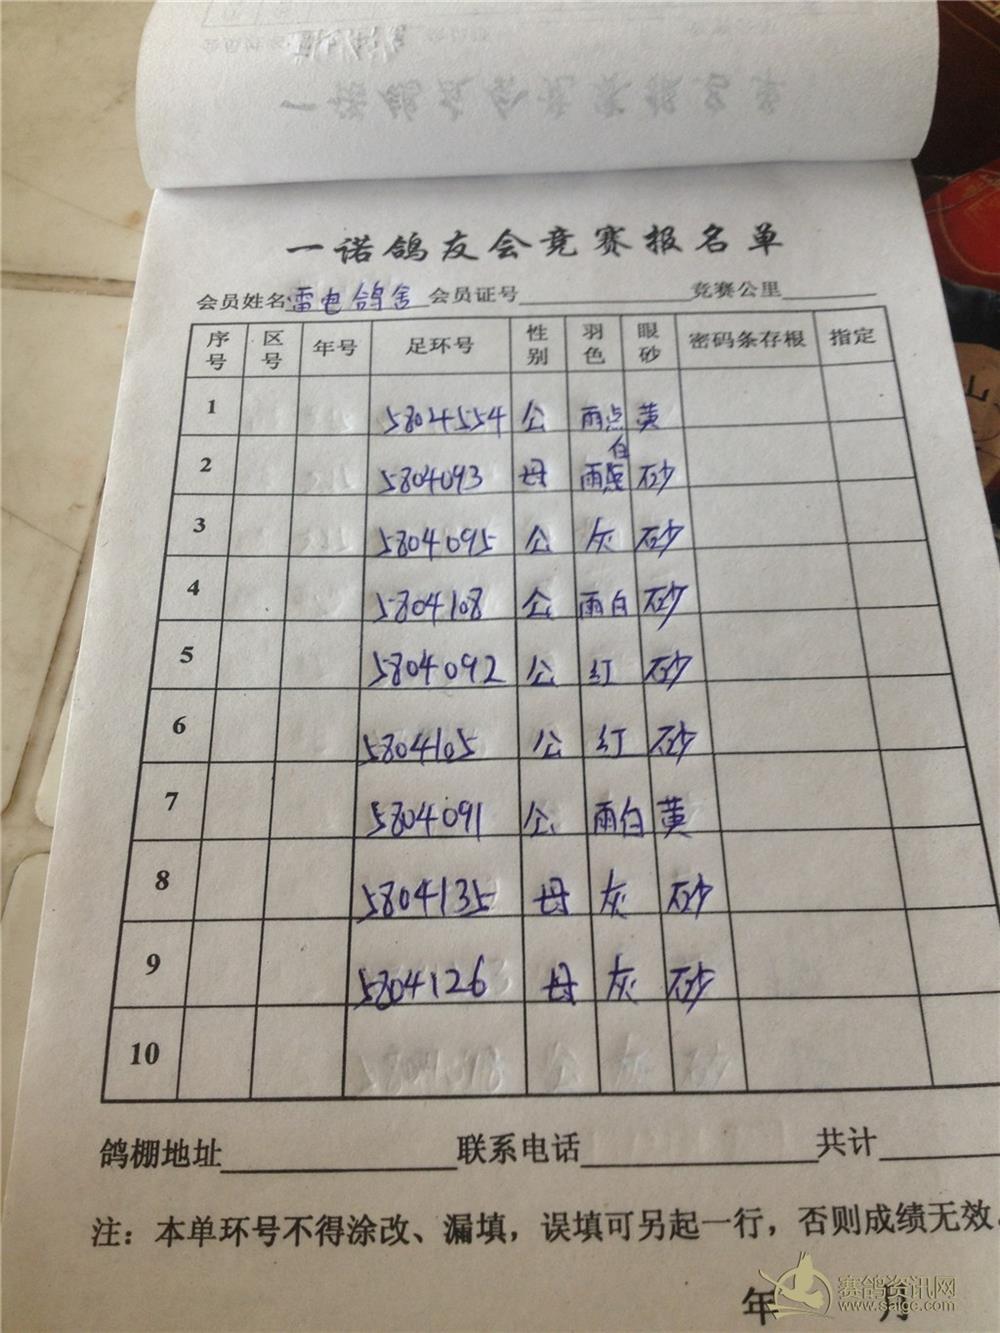 一诺鸽友会竞赛报名单
会员姓名 雷电鸽舍 会员证号 竞赛公里
序号 区号 年号 足环号 性别 羽色 眼砂 密码条存根 指定
1 5804554 公 雨点 黄
2 5804093 母 雨点白 砂
3 5804095 公 灰 砂
4 5804108 公 雨白 砂
5 5804092 公 红 砂
6 5804105 公 红 砂
7 5804091 公 雨白 黄
8 5804135 母 灰 砂
9 5804126 母 灰 砂
10
鸽棚地址 联系电话 共计
注：本单环号不得涂改、漏填，误填可另起一行，否则成绩无效
年 月
赛鸽资讯网
www.saigc.com